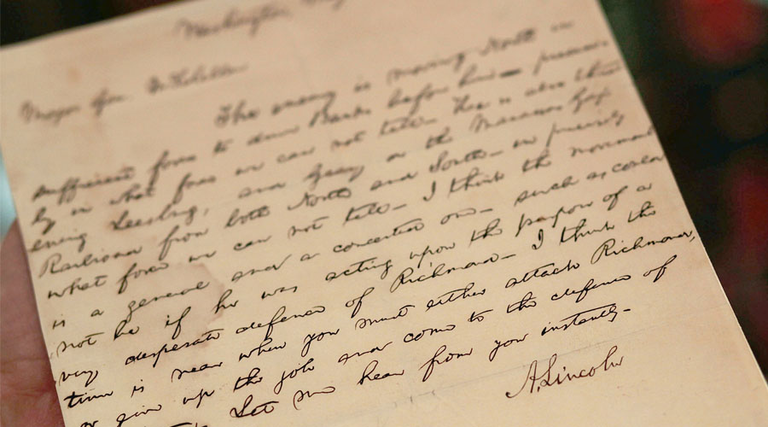 Washington, May
Major Gen. McClellan
The enemy is moving North in
sufficient force to drive Banks before him— precise-
ly in what force we can not tell— He is also threat
ening Leesburg, and Geary on the Manassas Gap
Railroad from both North and South— in precisely
what force we can not tell— I think the movement
is a general and concerted one— such as could
not be if he was acting upon the purpose of a
very desperate defence of Richmond— I think the
time is near when you must either attack Richmond,
or give up the job and come to the defence of
Let me hear from you instantly—
A. Lincoln